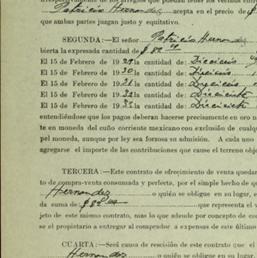 Patricio Hernandez, acepta en el precio de $
que ambas partes juzgan justo y equitativo.
SEGUNDA:—El señor Patricio Hernandez
bierta la expresada cantidad de $
El 15 de Febrero de 19 cantidad de: Dieciseis
El 15 de Febrero de 19 cantidad de: Dieciseis
El 15 de Febrero de 19 cantidad de: Dieciseis
El 15 de Febrero de 19 cantidad de: Dieciseis
El 15 de Febrero de 19 cantidad de: Dieciseis
entendiéndose que los pagos deberán hacerse precisamente en oro na
te en moneda del cuño corriente mexicano con exclusión de cualqu
pel moneda, aunque por ley sea forzosa su admisión. A cada uno
agregarse el importe de las contribuciones que cause el terreno objet
TERCERA:—Este contrato de ofrecimiento de venta quedar
to de compra-venta consumada y perfecta, por el simple hecho de q
Hernandez quién se obligue en lugar, e
da suma de $ que representa el v
jeto de este mismo contrato, más lo que adeude por concepto de co
se el propietario a entregar al comprador a expensas de este último
CUARTA:—Será causa de rescisión de este contrato que el
Hernandez quién se obligue